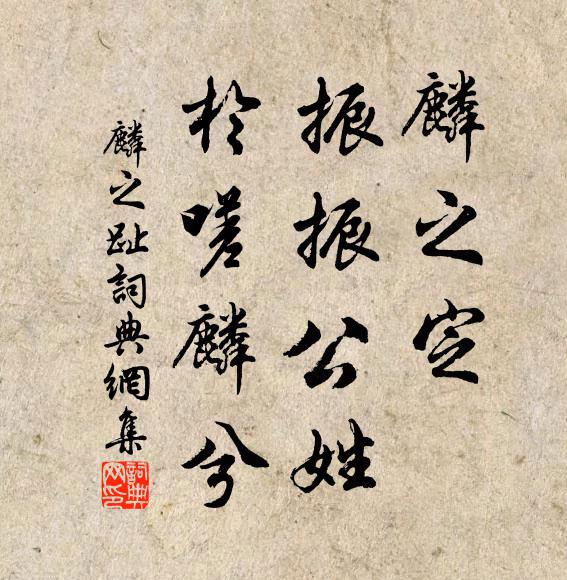 麟之定
振振公姓
於嗟麟兮
麟之趾詞典網集
詞典网印